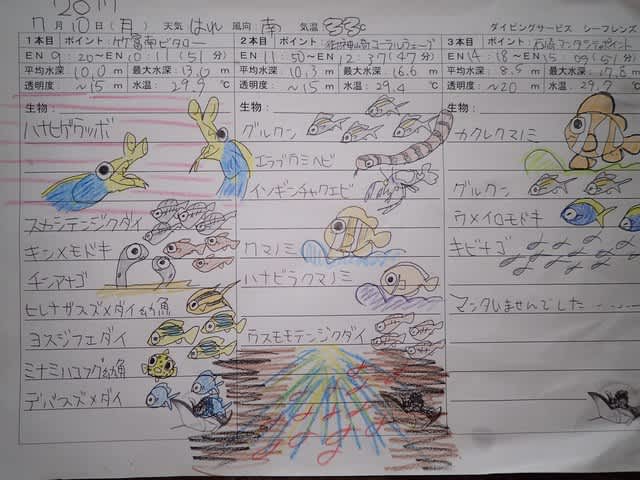 2017
7月10日(月) 天気 はれ 風向 南 気温 33℃ ダイビングサービス シーフレンズ
1本目 ポイント：竹富南ビタロー
EN 9：20～EN 10：11(51分)
平均水深：10.0m 最大水深：13.0m
透明度：～15m 水温：29.9℃
生物：
ハナヒゲウツボ
スカシテンジクダイ
キンメモドキ
チンアナゴ
ヒレナガスズメダイ幼魚
ヨスジフエダイ
ミナミハコフグ幼魚
デバスズメダイ
2本目 ポイント：コーラルウェーブ
EN 11：50～EN 12：37(47分)
平均水深：10.3m 最大水深：16.6m
透明度：～15m 水温：29.4℃
生物：
グルクン
エラブウミヘビ
イソギンチャクエビ
クマノミ
ハナビラクマノミ
ウスモモテンジクダイ
3本目 ポイント：石崎マンタシティポイント
EN 14：18～EN 15：09(51分)
平均水深：8.5m 最大水深：17.8m
透明度：～20m 水温：29.7℃
生物：
カクレクマノミ
グルクン
ウメイロモドキ
キビナゴ
マンタいませんでした